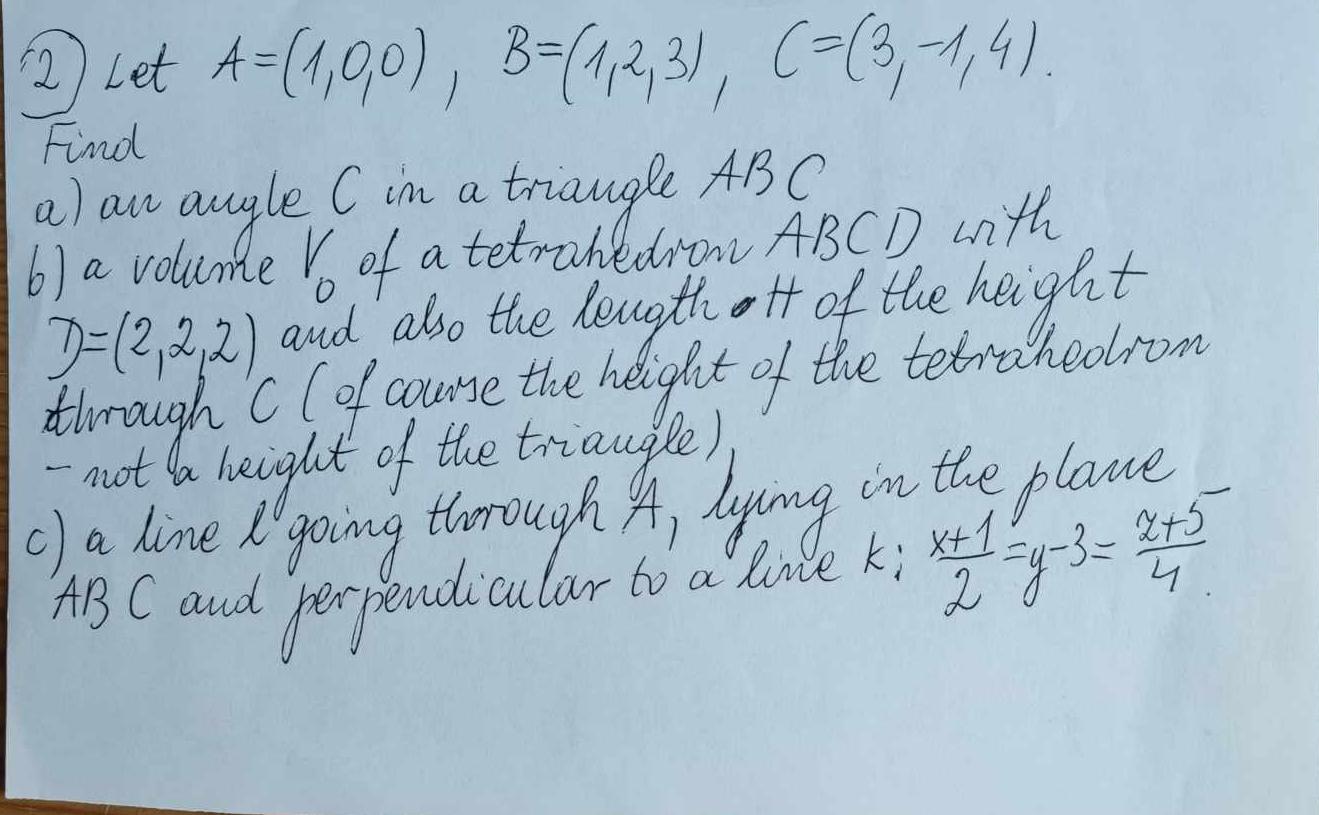 (2) Let A=(1,0,0), B=(1,2,3), C=(3,-1,4).
Find
a) an angle C in a triangle ABC
b) a volume V₀ of a tetrahedron ABCD with
D=(2,2,2) and also the length H of the height
through C (of course the height of the tetrahedron
- not a height of the triangle),
c) a line l going thorough A, lying in the plane
ABC and perpendicular to a line k: (x+1)/2=y-3=(z+5)/4.